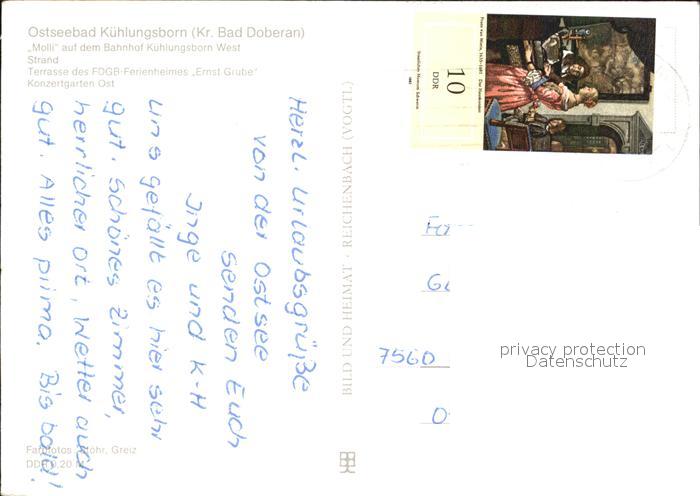 Ostseebad Kühlungsborn (Kr. Bad Doberan)
„Molli" auf dem Bahnhof Kühlungsborn West
Strand
Terrasse des FDGB-Ferienheimes „Ernst Grube"
Konzertgarten Ost
Herzl. Urlaubsgrüße
von der Ostsee
senden Euch
Inge und K-H
Uns gefällt es hier sehr
gut. Schönes Zimmer,
herrlicher Ort, Wetter auch
gut. Alles prima. Bis bald!
Farbfotos: Stöhr, Greiz
DDR 0,20 M
BILD UND HEIMAT · REICHENBACH (VOGTL)
10
DDR
Staatliches Museum Schwerin
7560
privacy protection
Datenschutz